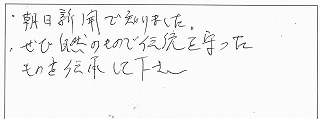 ・朝日新聞で知りました。
・ぜひ自然のもので伝統を守った
ものを伝承して下さい